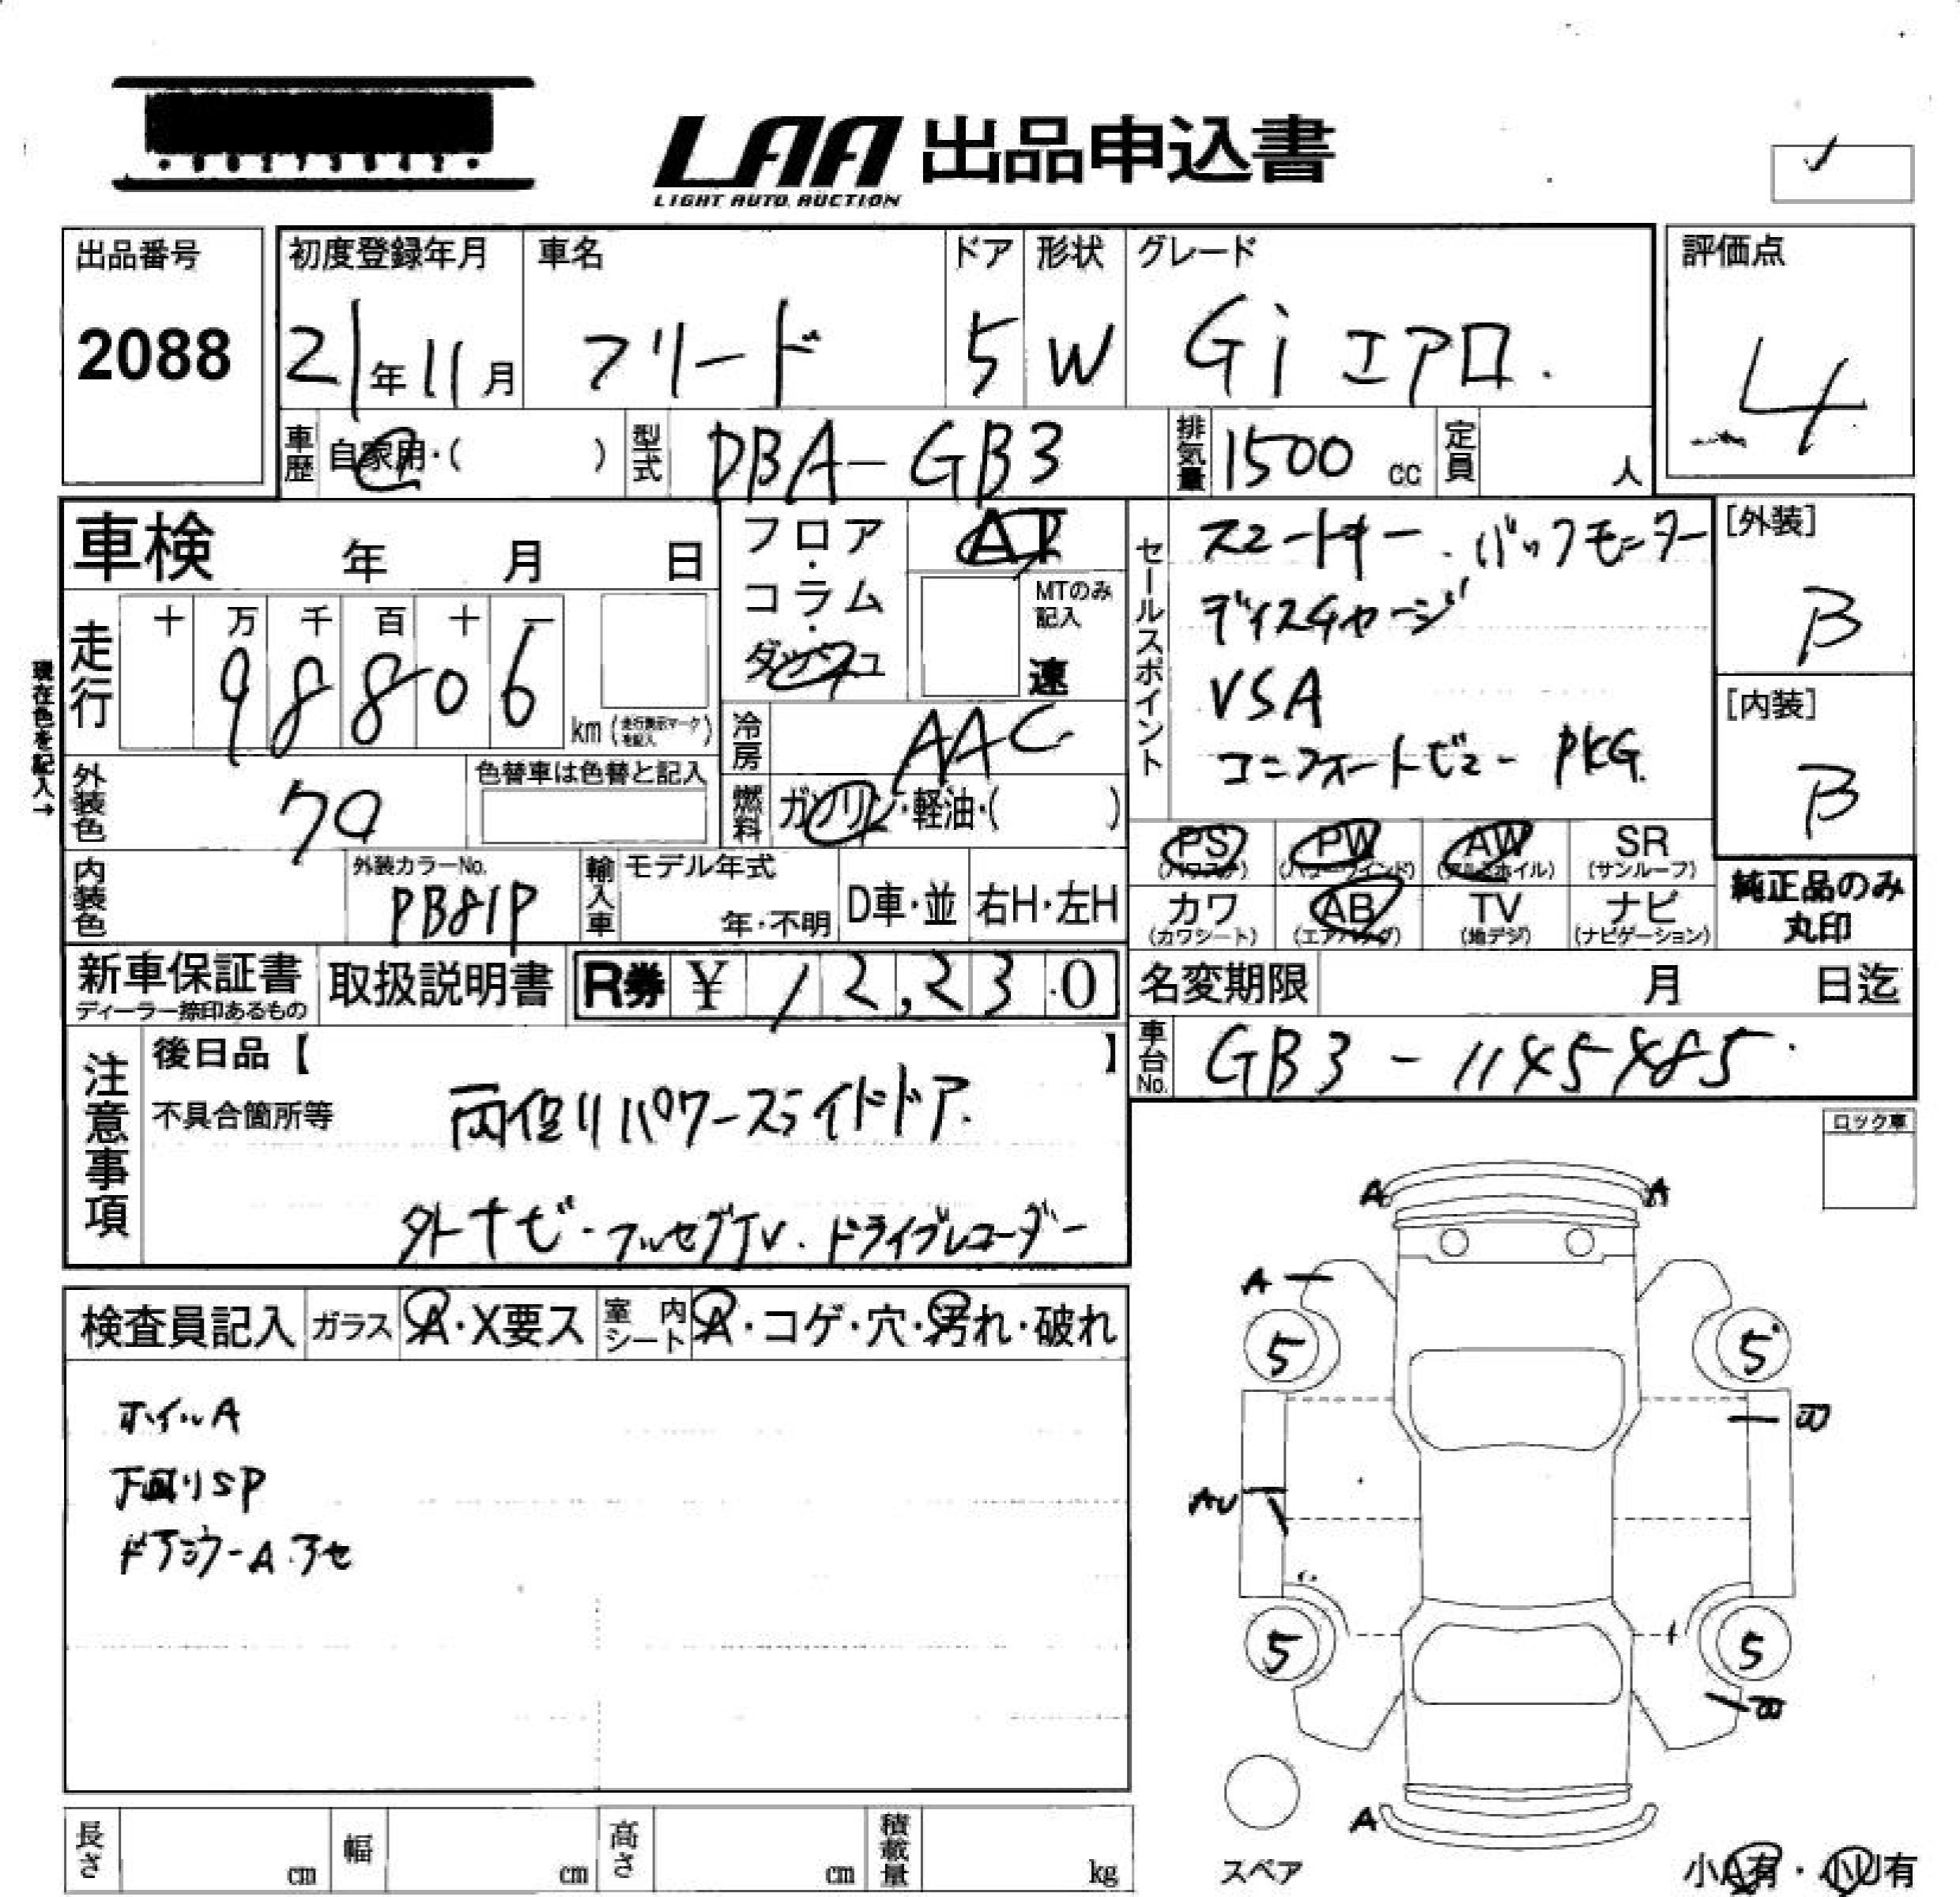 LAA 出品申込書
LIGHT AUTO AUCTION
出品番号
2088
初度登録年月
21年11月
車名
フリード
ドア
5
形状
W
グレード
Gi エアロ.
評価点
4
車歴 自家用・( )
型式 DBA-GB3
排気量 1500 cc
定員 人
車検 年 月 日
フロア・コラム・ダッシュ
AT
MTのみ記入
速
セールスポイント
スマートキー . バックモニター
ディスチャージ
VSA
コンフォートビュー PKG.
[外装]
B
[内装]
B
現在色を記入→
走行 十 万 千 百 十 一
98806
km (走行表示マークを記入)
冷房 AAC
燃料 ガソリン・軽油・( )
外装色 クロ
色替車は色替と記入
内装色
外装カラーNo.
PB81P
輸入車 モデル年式
年・不明
D車・並
右H・左H
PS (パワステ)
PW (パワーウインド)
AW (アルミホイル)
SR (サンルーフ)
カワ (カワシート)
AB (エアバッグ)
TV (地デジ)
ナビ (ナビゲーション)
純正品のみ丸印
新車保証書
ディーラー捺印あるもの
取扱説明書
R券 ¥ 12,230
名変期限 月 日迄
車台No. GB3-1145485
注意事項
後日品【 】
不具合箇所等
両側リパワースライドドア.
外ナビ・フルセグTV. ドライブレコーダー
ロック車
検査員記入
ガラス A・X要ス
室内シート A・コゲ・穴・汚れ・破れ
ホイルA
下回りSP
ドアミラーA アセ
A A
A
5 5
B
AU
5 5
B
A
スペア
小A有・小U有
長さ cm
幅 cm
高さ cm
積載量 kg